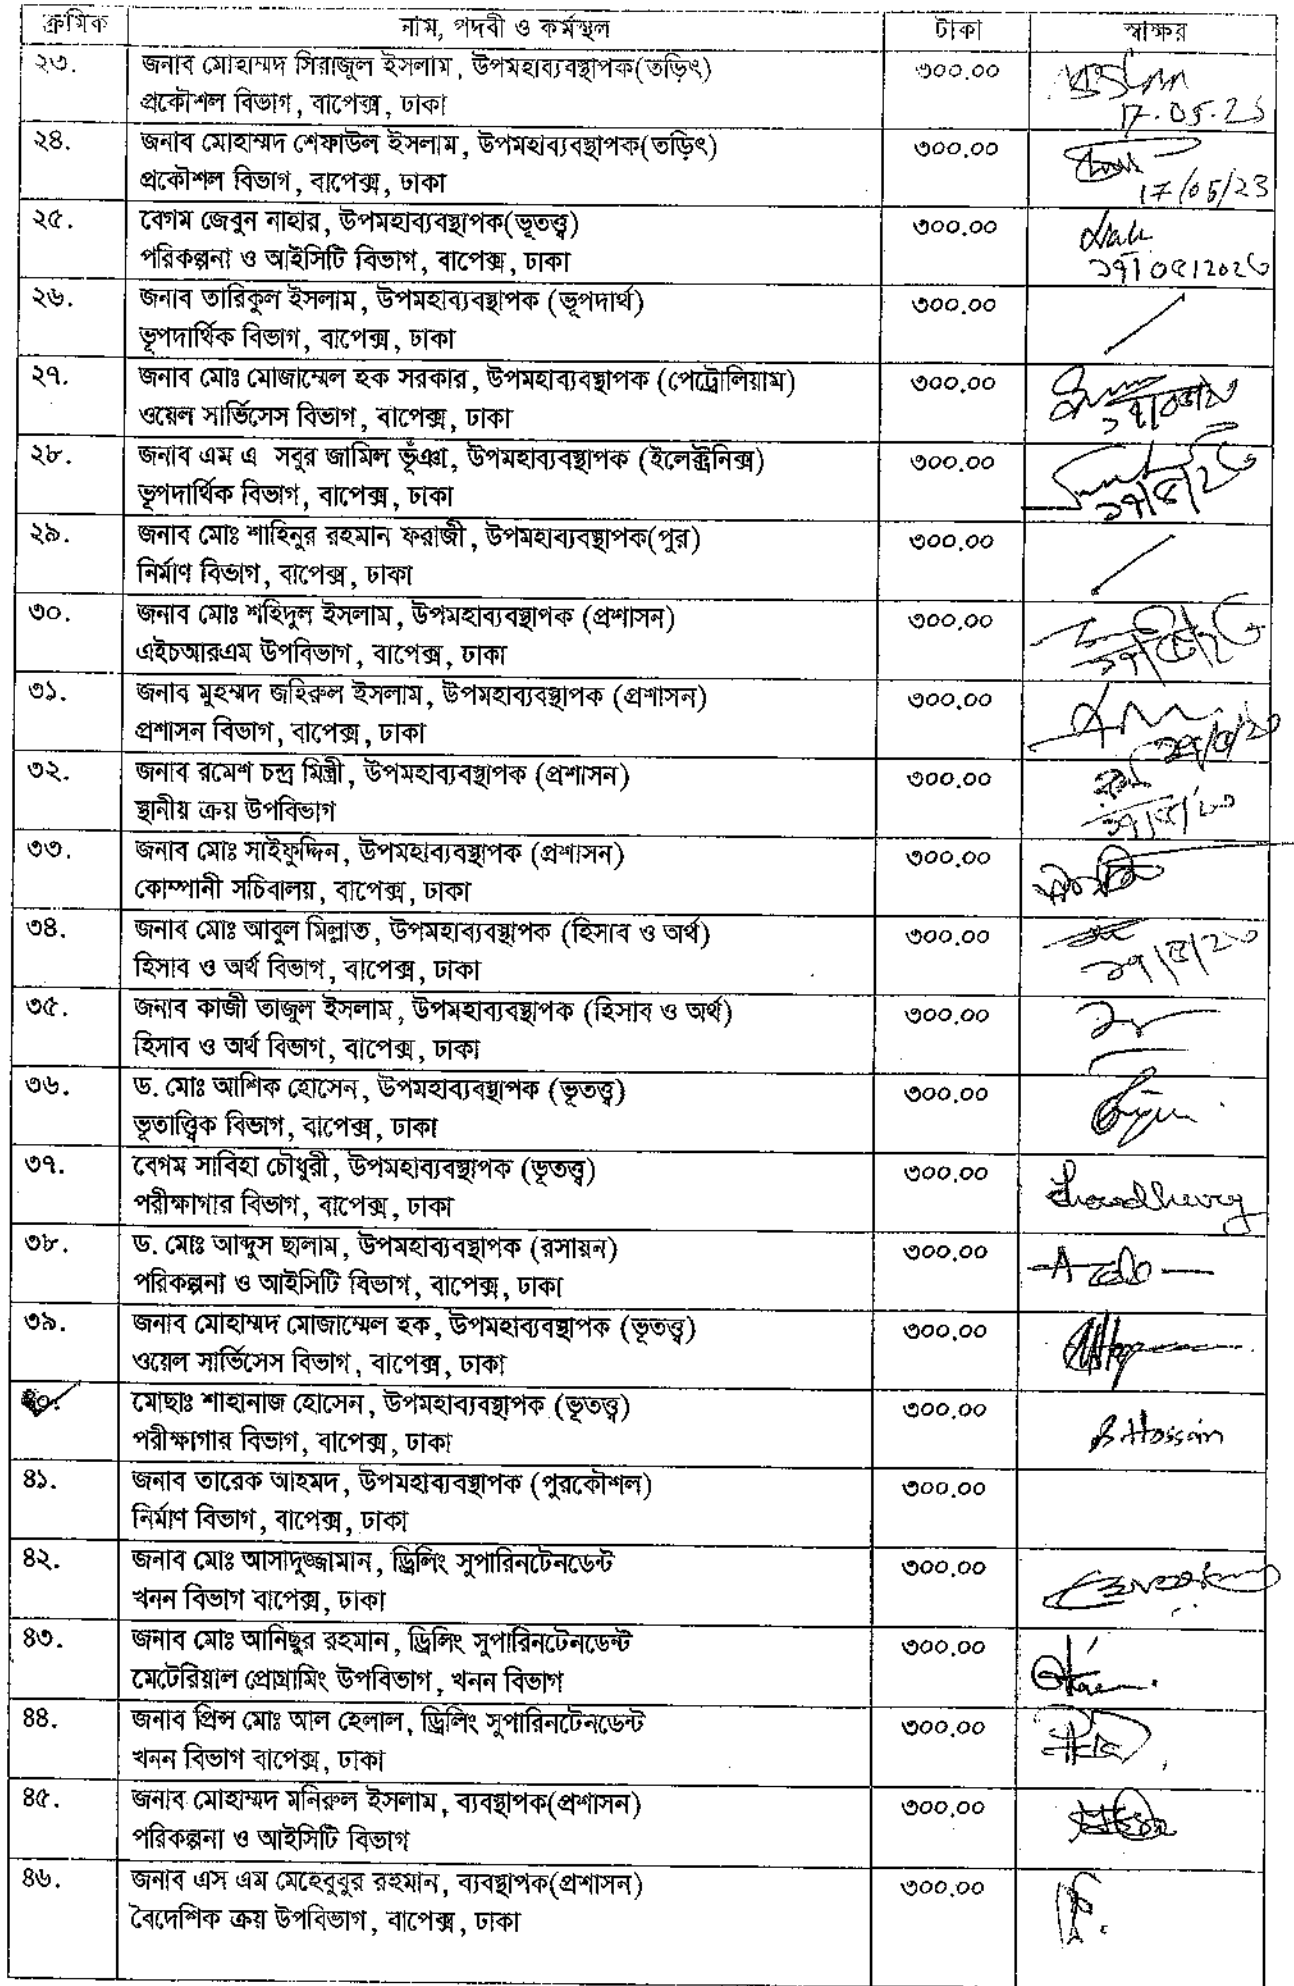 ক্রমিক নাম, পদবী ও কর্মস্থল টাকা স্বাক্ষর
২৩. জনাব মোহাম্মদ সিরাজুল ইসলাম, উপমহাব্যবস্থাপক(তড়িৎ) ৩০০.০০
প্রকৌশল বিভাগ, বাপেক্স, ঢাকা 17.05.23
২৪. জনাব মোহাম্মদ শেফাউল ইসলাম, উপমহাব্যবস্থাপক(তড়িৎ) ৩০০.০০
প্রকৌশল বিভাগ, বাপেক্স, ঢাকা 17/05/23
২৫. বেগম জেবুন নাহার, উপমহাব্যবস্থাপক(ভূতত্ত্ব) ৩০০.০০
পরিকল্পনা ও আইসিটি বিভাগ, বাপেক্স, ঢাকা ১৭/০৫/২০২৩
২৬. জনাব তারিকুল ইসলাম, উপমহাব্যবস্থাপক (ভূপদার্থ) ৩০০.০০
ভূপদার্থিক বিভাগ, বাপেক্স, ঢাকা
২৭. জনাব মোঃ মোজাম্মেল হক সরকার, উপমহাব্যবস্থাপক (পেট্রোলিয়াম) ৩০০.০০
ওয়েল সার্ভিসেস বিভাগ, বাপেক্স, ঢাকা
২৮. জনাব এম এ সবুর জামিল ভূঁঞা, উপমহাব্যবস্থাপক (ইলেক্ট্রনিক্স) ৩০০.০০
ভূপদার্থিক বিভাগ, বাপেক্স, ঢাকা ১৭/৫/২৩
২৯. জনাব মোঃ শাহিনুর রহমান ফরাজী, উপমহাব্যবস্থাপক(পুর) ৩০০.০০
নির্মাণ বিভাগ, বাপেক্স, ঢাকা
৩০. জনাব মোঃ শহিদুল ইসলাম, উপমহাব্যবস্থাপক (প্রশাসন) ৩০০.০০
এইচআরএম উপবিভাগ, বাপেক্স, ঢাকা
৩১. জনাব মুহম্মদ জহিরুল ইসলাম, উপমহাব্যবস্থাপক (প্রশাসন) ৩০০.০০
প্রশাসন বিভাগ, বাপেক্স, ঢাকা
৩২. জনাব রমেশ চন্দ্র মিস্ত্রী, উপমহাব্যবস্থাপক (প্রশাসন) ৩০০.০০
স্থানীয় ক্রয় উপবিভাগ
৩৩. জনাব মোঃ সাইফুদ্দিন, উপমহাব্যবস্থাপক (প্রশাসন) ৩০০.০০
কোম্পানী সচিবালয়, বাপেক্স, ঢাকা
৩৪. জনাব মোঃ আবুল মিল্লাত, উপমহাব্যবস্থাপক (হিসাব ও অর্থ) ৩০০.০০
হিসাব ও অর্থ বিভাগ, বাপেক্স, ঢাকা ১৭/৫/২৩
৩৫. জনাব কাজী তাজুল ইসলাম, উপমহাব্যবস্থাপক (হিসাব ও অর্থ) ৩০০.০০
হিসাব ও অর্থ বিভাগ, বাপেক্স, ঢাকা
৩৬. ড. মোঃ আশিক হোসেন, উপমহাব্যবস্থাপক (ভূতত্ত্ব) ৩০০.০০
ভূতাত্ত্বিক বিভাগ, বাপেক্স, ঢাকা
৩৭. বেগম সাবিহা চৌধুরী, উপমহাব্যবস্থাপক (ভূতত্ত্ব) ৩০০.০০
পরীক্ষাগার বিভাগ, বাপেক্স, ঢাকা
৩৮. ড. মোঃ আব্দুস ছালাম, উপমহাব্যবস্থাপক (রসায়ন) ৩০০.০০
পরিকল্পনা ও আইসিটি বিভাগ, বাপেক্স, ঢাকা
৩৯. জনাব মোহাম্মদ মোজাম্মেল হক, উপমহাব্যবস্থাপক (ভূতত্ত্ব) ৩০০.০০
ওয়েল সার্ভিসেস বিভাগ, বাপেক্স, ঢাকা
৪০. মোছাঃ শাহানাজ হোসেন, উপমহাব্যবস্থাপক (ভূতত্ত্ব) ৩০০.০০
পরীক্ষাগার বিভাগ, বাপেক্স, ঢাকা Hossain
৪১. জনাব তারেক আহমদ, উপমহাব্যবস্থাপক (পুরকৌশল) ৩০০.০০
নির্মাণ বিভাগ, বাপেক্স, ঢাকা
৪২. জনাব মোঃ আসাদুজ্জামান, ড্রিলিং সুপারিনটেনডেন্ট ৩০০.০০
খনন বিভাগ বাপেক্স, ঢাকা
৪৩. জনাব মোঃ আনিছুর রহমান, ড্রিলিং সুপারিনটেনডেন্ট ৩০০.০০
মেটেরিয়াল প্রোগ্রামিং উপবিভাগ, খনন বিভাগ
৪৪. জনাব প্রিন্স মোঃ আল হেলাল, ড্রিলিং সুপারিনটেনডেন্ট ৩০০.০০
খনন বিভাগ বাপেক্স, ঢাকা
৪৫. জনাব মোহাম্মদ মনিরুল ইসলাম, ব্যবস্থাপক(প্রশাসন) ৩০০.০০
পরিকল্পনা ও আইসিটি বিভাগ
৪৬. জনাব এস এম মেহেবুবুর রহমান, ব্যবস্থাপক(প্রশাসন) ৩০০.০০
বৈদেশিক ক্রয় উপবিভাগ, বাপেক্স, ঢাকা